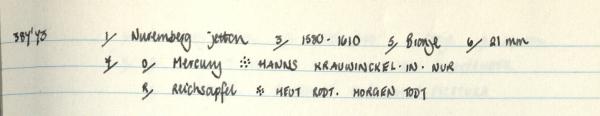 384'73 1/ Nuremberg jetton 3/ 1580 - 1610 5/ Bronze 6/ 21 mm
7/ O/ Mercury ⁘ HANNS KRAUWINCKEL · IN · NUR
R/ Reichsapfel ⁘ HEUT RODT. MORGEN TODT